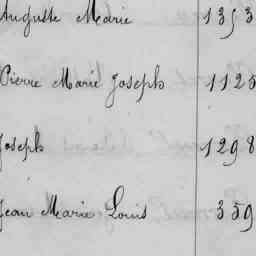 Auguste Marie 1353
Pierre Marie Joseph 1125
Joseph 1298
Jean Marie Louis 359